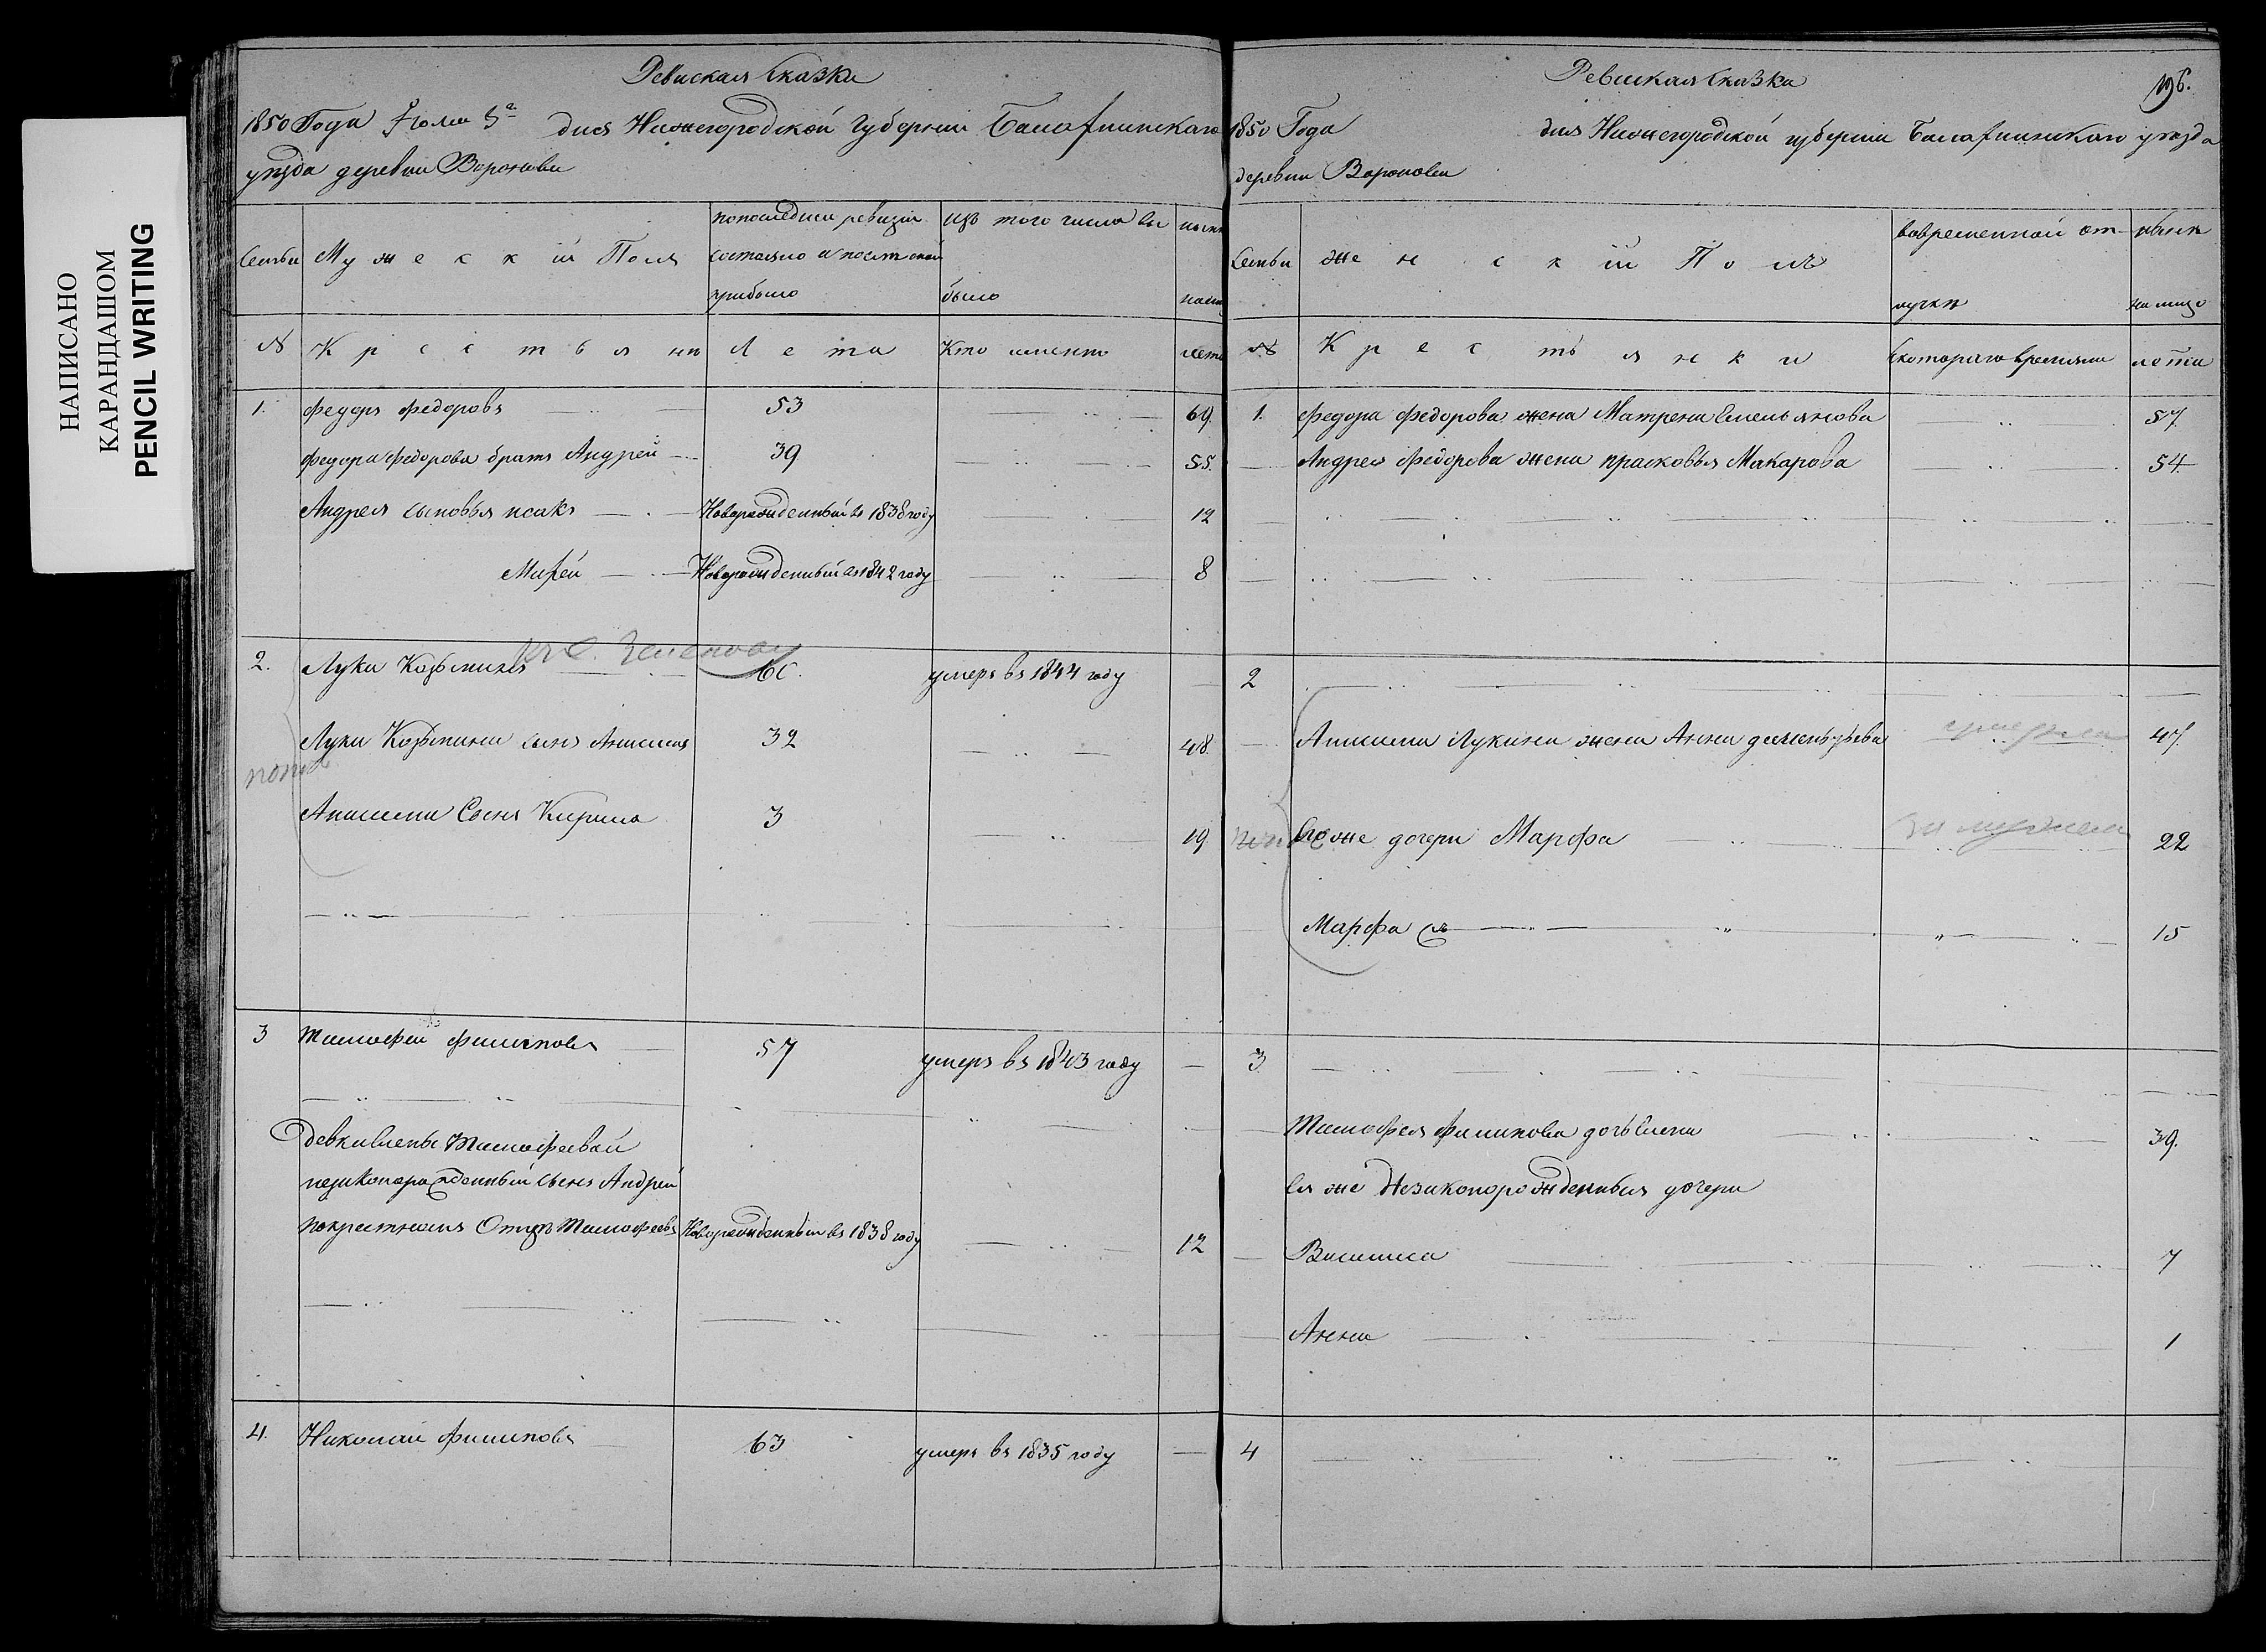 НАПИСАНО
КАРАНДАШОМ
PENCIL WRITING
Ревиская Сказка
1850 Года Июля 5го дня Нижегородской Губернии Балахнинскаго
уезда деревни Воронова
Семьи
Мужескій Полъ
попоследней ревизіи
состояло и после оной
прибыло
изъ того числа вы
было
ныне
налиц
№
Крестьяне
Лета
Кто именно
лета
1. Федоръ Федоровъ 53 69.
Федора Федорова братъ Андрей 39 55.
Андрея сыновья исакъ Новорожденный въ 1838 году 12
Мирей Новорожденный въ 1842 году 8
2. Лука Козьминъ 60. умеръ въ 1844 году
Луки Козьмина сынъ Анисимъ 32 48.
Анисима Сынъ Кирила 3 19
3 Тимофей филиповъ 57 умеръ въ 1843 году
Девки Елены Тимофеевой
незаконорожденный сынъ Андрей
покрестному Отцу Тимофеевъ Новорожденный въ 1838 году 12
4. Николай Филиповъ 63 умеръ въ 1835 году
Ревиская Сказка
196.
1850 Года дня Нижегородской губерніи Балахнинскаго уезда
деревни Вороновы
Семьи
женскій Полъ
вовременной от-
лучке
ныне
на лицо
№
Крестьянки
Скотораго времяни
лета
1. Федора Федорова жена Матрена Емельянова 57.
Андрея Федорова жена прасковья Макарова 54
2
Анисима Лукина жена Анна дементьева умерла 47.
Его же дочери Марфа за мужем 22
Марфа 15
3
Тимофея Филипова дочь Елена 39.
Ея же Незаконорожденныя дочери
Василиса 7
Анна 1
4